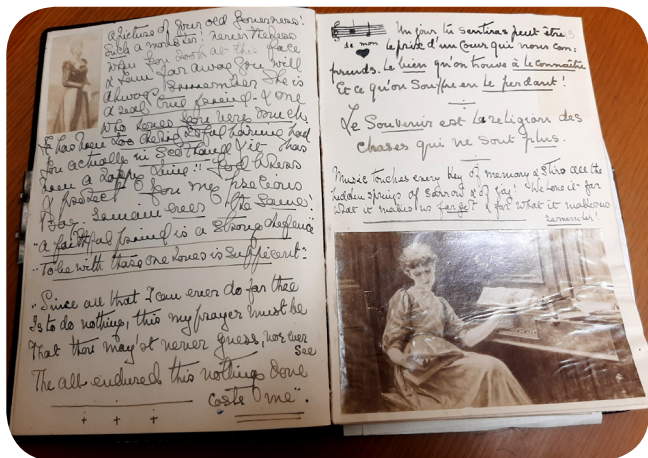 A picture of your old Governess!
Such a monster! Nevertheless
when you look at this face
& I am far away you will
always remember she is
a real true friend - & one
who loves you very much
It has been too delightful having had
you actually in Scotland Yit has
been a happy time!! God bless
& protect you my precious
"a faithful friend is a strong defence"
"To be with those one loves is sufficient"
"Since all that I can ever do for thee
Is to do nothing, this my prayer must be
That thou may'st never guess, nor ever
see
The all-endured this nothing done
costs me".
Un jour tu sentiras peut être
de mon le prix d'un Coeur qui nous com:
prends. Le bien qu'on trouve à le connaître
Et ce qu'on Souffre en le perdant!
Le Souvenir est la religion des
choses qui ne sont plus.
Music touches every key of memory & stirs all the
hidden springs of sorrow & of joy! We love it for
what it makes us forget & for what it makes us
remember!